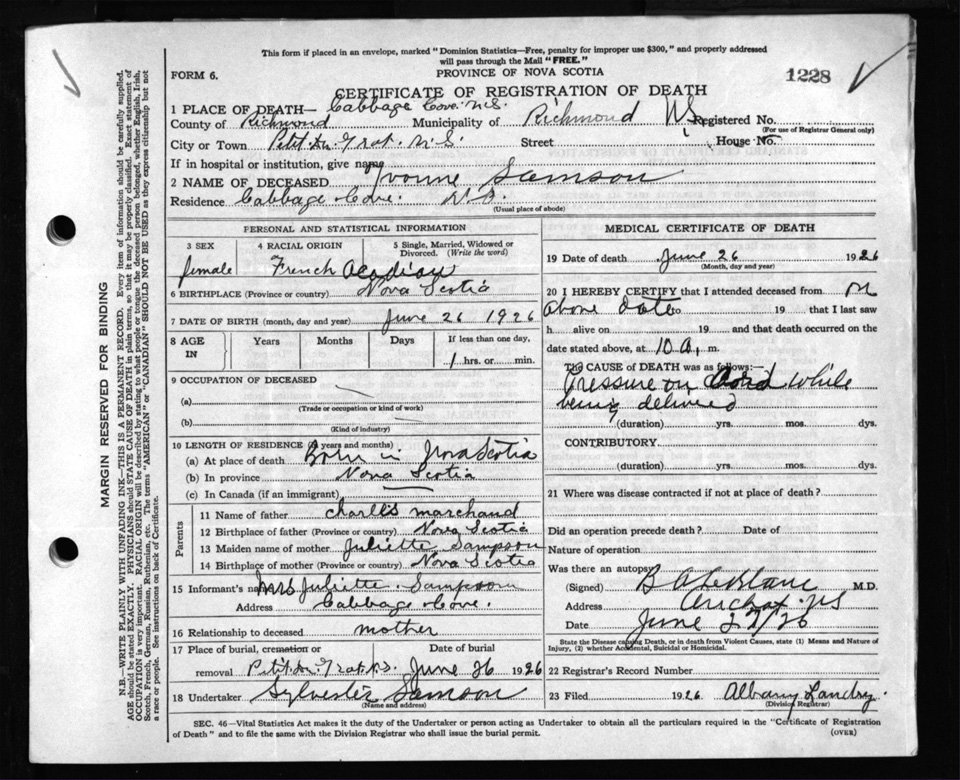 This form if placed in an envelope, marked "Dominion Statistics—Free, penalty for improper use $300," and properly addressed
will pass through the Mail "FREE."
FORM 6.
PROVINCE OF NOVA SCOTIA
1228
CERTIFICATE OF REGISTRATION OF DEATH
1 PLACE OF DEATH— Cabbage Cove. N.S.
County of Richmond Municipality of Richmond Registered No.
(For use of Registrar General only)
City or Town Petit de Grat. N.S. Street House No.
If in hospital or institution, give name
2 NAME OF DECEASED Yvonne Samson
Residence Cabbage Cove. N.S.
(Usual place of abode)
PERSONAL AND STATISTICAL INFORMATION
3 SEX 4 RACIAL ORIGIN 5 Single, Married, Widowed or Divorced. (Write the word)
female French Acadian
6 BIRTHPLACE (Province or country) Nova Scotia
7 DATE OF BIRTH (month, day and year) June 26 1926
8 AGE IN Years Months Days If less than one day,
1 hrs. or min.
9 OCCUPATION OF DECEASED
(a)
(Trade or occupation or kind of work)
(b)
(Kind of industry)
10 LENGTH OF RESIDENCE (in years and months)
(a) At place of death Born in Nova Scotia
(b) In province Nova Scotia
(c) In Canada (if an immigrant)
Parents
11 Name of father Charles Marchand
12 Birthplace of father (Province or country) Nova Scotia
13 Maiden name of mother Juliette Sampson
14 Birthplace of mother (Province or country) Nova Scotia
15 Informant's name Mrs Juliette Sampson
Address Cabbage Cove.
16 Relationship to deceased mother
17 Place of burial, cremation or removal Date of burial
Petit de Grat N.S. June 26 1926
18 Undertaker Sylvester Samson
(Name and address)
MEDICAL CERTIFICATE OF DEATH
19 Date of death June 26 1926
(Month, day and year)
20 I HEREBY CERTIFY that I attended deceased from on
above date to 19 that I last saw
h alive on 19 and that death occurred on
date stated above, at 10 a. m.
THE CAUSE OF DEATH was as follows:—
Pressure on Cord while
being delivered
(duration) yrs. mos. dys.
CONTRIBUTORY
(duration) yrs. mos. dys.
21 Where was disease contracted if not at place of death?
Did an operation precede death? Date of
Nature of operation
Was there an autopsy
(Signed) B A LeBlanc M.D.
Address Arichat NS
Date June 27/26
State the Disease causing Death, or in death from Violent Causes, state (1) Means and Nature of
Injury, (2) whether Accidental, Suicidal or Homicidal.
22 Registrar's Record Number
23 Filed 1926 Albany Landry.
(Division Registrar)
SEC. 46—Vital Statistics Act makes it the duty of the Undertaker or person acting as Undertaker to obtain all the particulars required in the "Certificate of Registration
of Death" and to file the same with the Division Registrar who shall issue the burial permit.
(OVER)
MARGIN RESERVED FOR BINDING
N.B.—WRITE PLAINLY WITH UNFADING INK—THIS IS A PERMANENT RECORD. Every item of information should be carefully supplied.
AGE should be stated EXACTLY. PHYSICIANS should STATE CAUSE OF DEATH in plain terms, so that it may be properly classified. Exact statement of
OCCUPATION is very important. RACIAL ORIGIN will be described by stating to what people or tongue the deceased person belonged, whether English, Irish,
Scotch, French, German, Russian, Ruthenian, etc. The terms "AMERICAN" or "CANADIAN" SHOULD NOT BE USED as they express citizenship but not
a race or people. See instructions on back of Certificate.